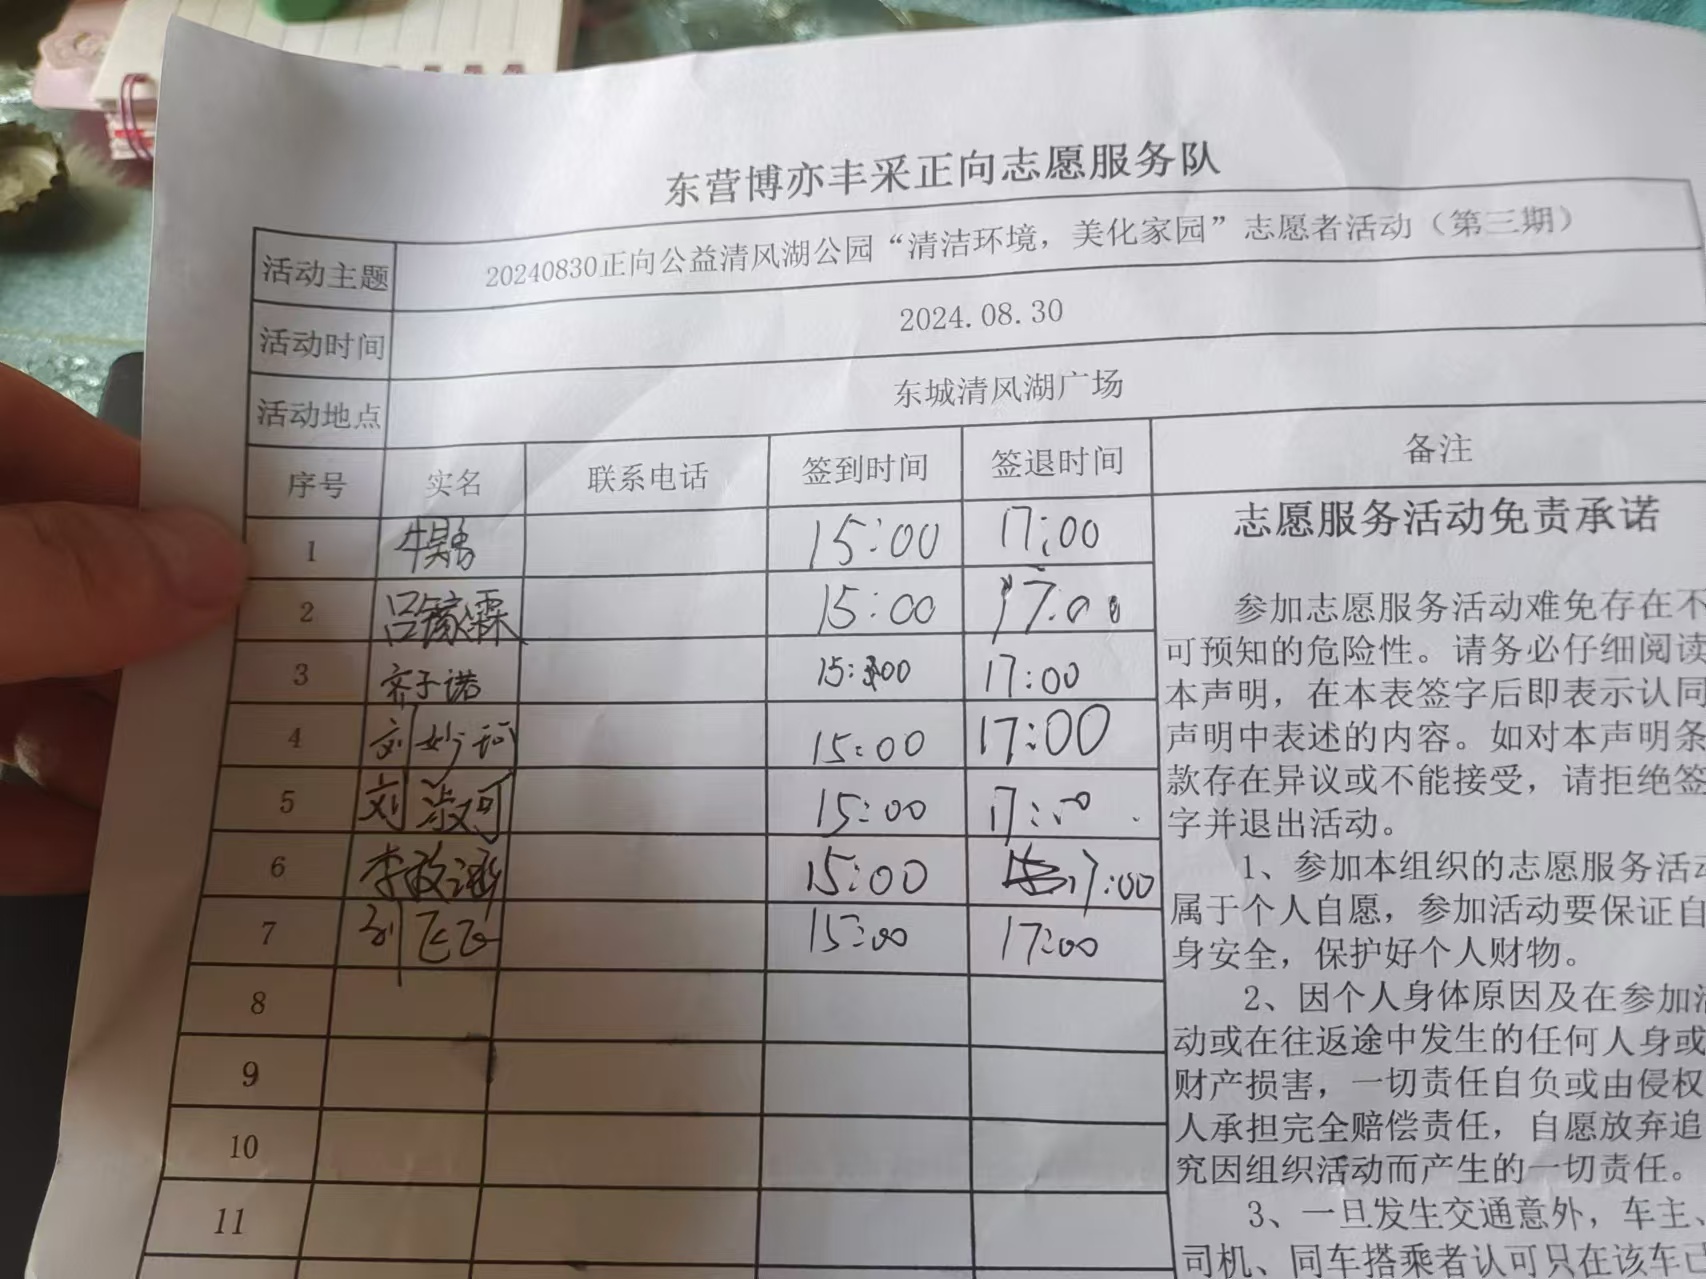 东营博亦丰采正向志愿服务队
活动主题 20240830正向公益清风湖公园“清洁环境，美化家园”志愿者活动（第三期）
活动时间 2024.08.30
活动地点 东城清风湖广场
序号 实名 联系电话 签到时间 签退时间 备注
1 15:00 17:00
2 吕 霖 15:00 17:00
3 齐子诺 15:00 17:00
4 刘妙 15:00 17:00
5 刘淑可 15:00 17:00
6 李政涵 15:00 17:00
7 刘飞飞 15:00 17:00
8
9
10
11
志愿服务活动免责承诺
参加志愿服务活动难免存在不
可预知的危险性。请务必仔细阅读
本声明，在本表签字后即表示认同
声明中表述的内容。如对本声明条
款存在异议或不能接受，请拒绝签
字并退出活动。
1、参加本组织的志愿服务活动
属于个人自愿，参加活动要保证自
身安全，保护好个人财物。
2、因个人身体原因及在参加活
动或在往返途中发生的任何人身或
财产损害，一切责任自负或由侵权
人承担完全赔偿责任，自愿放弃追
究因组织活动而产生的一切责任。
3、一旦发生交通意外，车主、
司机、同车搭乘者认可只在该车已